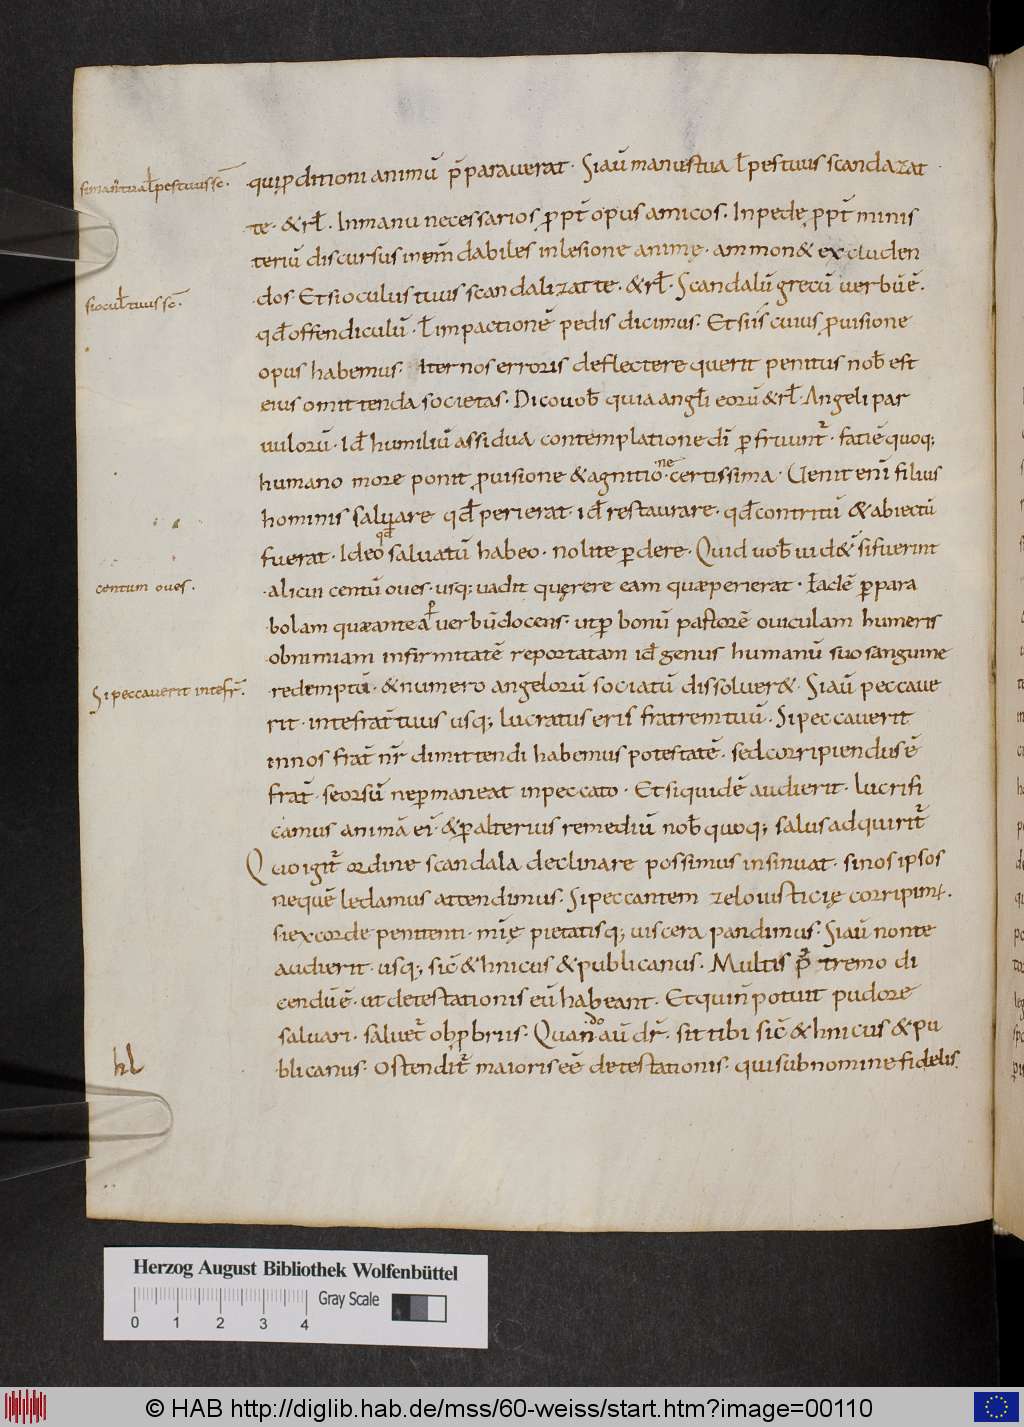 si man' tua ł pes tuus sc̄.
qui ꝑditioni animū p̄parauerat · Si aū manus tua ł pes tuus scandazat
te · & rł. In manu necessarios ꝓpt̄ opus amicos · In pede ꝓpt̄ minis
teriū discursus
in lesione animę · ammon& excluden
si ocul' tuus sc̄.
dos Et si oculus tuus scandalizat te · & rł · Scandalū grecū uerbū ē ·
qđ offendiculū · ł impactionē pedis dicimus · Et si is cuius ꝓuisione
opus habemus · Iter nos erroris deflectere querit penitus nob̄ est
eius omittenda societas · Dico uob̄ quia angłi eorū & rł · Angeli par
uulorū · Id̄ humiliū assidua contemplatione dī ꝑfruunt᷑ · fatiē quoq;
humano more ponit ꝓuisione & agnitione certissima · Uenit enī filius
hominis saluare qđ perierat · id̄ restaurare · qđ contritū & abiectū
fuerat · Ideo qđ saluatū habeo · nolite ꝑdere · Quid uob̄ uid& si fuerint
centum oues.
alicui centū oues · usq; uadit querere eam quæ perierat · Eadē ꝑ para
bolam quæ ante aꝑ uerbū docens · ut ꝑ bonū pastorē ouiculam humeris
ob nimiam infirmitatē reportatam id̄ genus humanū suo sanguine
Si peccauerit in te fr̄.
redemptū · & numero angelorū sociatū dissoluer& · Si aū peccaue
rit · in te frat̄ tuus usq; lucratus eris fratrem tuū · Si peccauerit
in nos frat̄ nr̄ dimittendi habemus potestatē · sed corripiendus ē
frat̄ · seorsū ne ꝑmaneat in peccato · Et siquidē audierit · lucrifi
camus animā eī · & ꝑ alterius remediū nob̄ quoq; salus adquirit᷑
Quo igit᷑ ordine scandala declinare possimus insinuat · si nos ipsos
neque ledamus attendimus · Si peccantem zelo iusticię corripim᷒ ·
si ex corde penitenti · mīę pietatisq; uiscera pandimus · Si aū non te
audierit · usq; sic̄ & hnicus & publicanus · Multis p̄ tremo di
cendū ē · ut detestationis eū habeant · Et qui ñ potuit pudore
saluari · saluet᷑ obꝓbriis · Quando aū dr̄ · sit tibi sic̄ & hnicus & pu
blicanus · Ostendit᷑ maioris eē detestationis · qui sub nomine fidelis
Herzog August Bibliothek Wolfenbüttel
Gray Scale
0 1 2 3 4
© HAB http://diglib.hab.de/mss/60-weiss/start.htm?image=00110